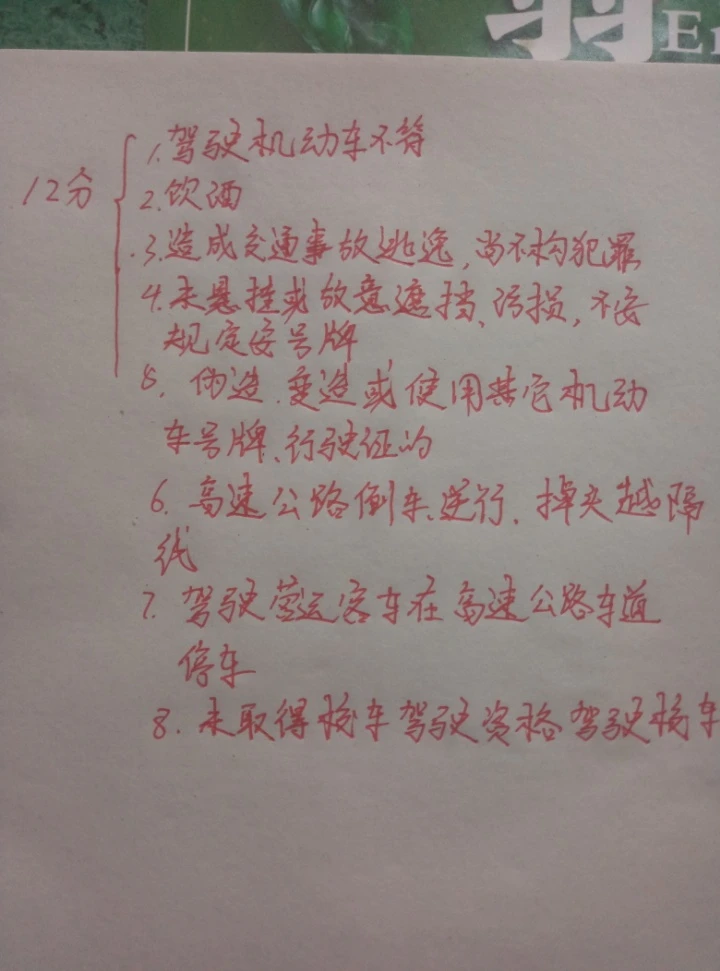 12分
1.驾驶机动车不符
2.饮酒
3.造成交通事故逃逸,尚不构犯罪
4.未悬挂或故意遮挡、污损,不安
规定安号牌
5.伪造.变造或使用其它机动
车号牌、行驶证的
6.高速公路倒车.逆行.掉头越隔
线
7.驾驶营运客车在高速公路车道
停车
8.未取得校车驾驶资格驾驶校车